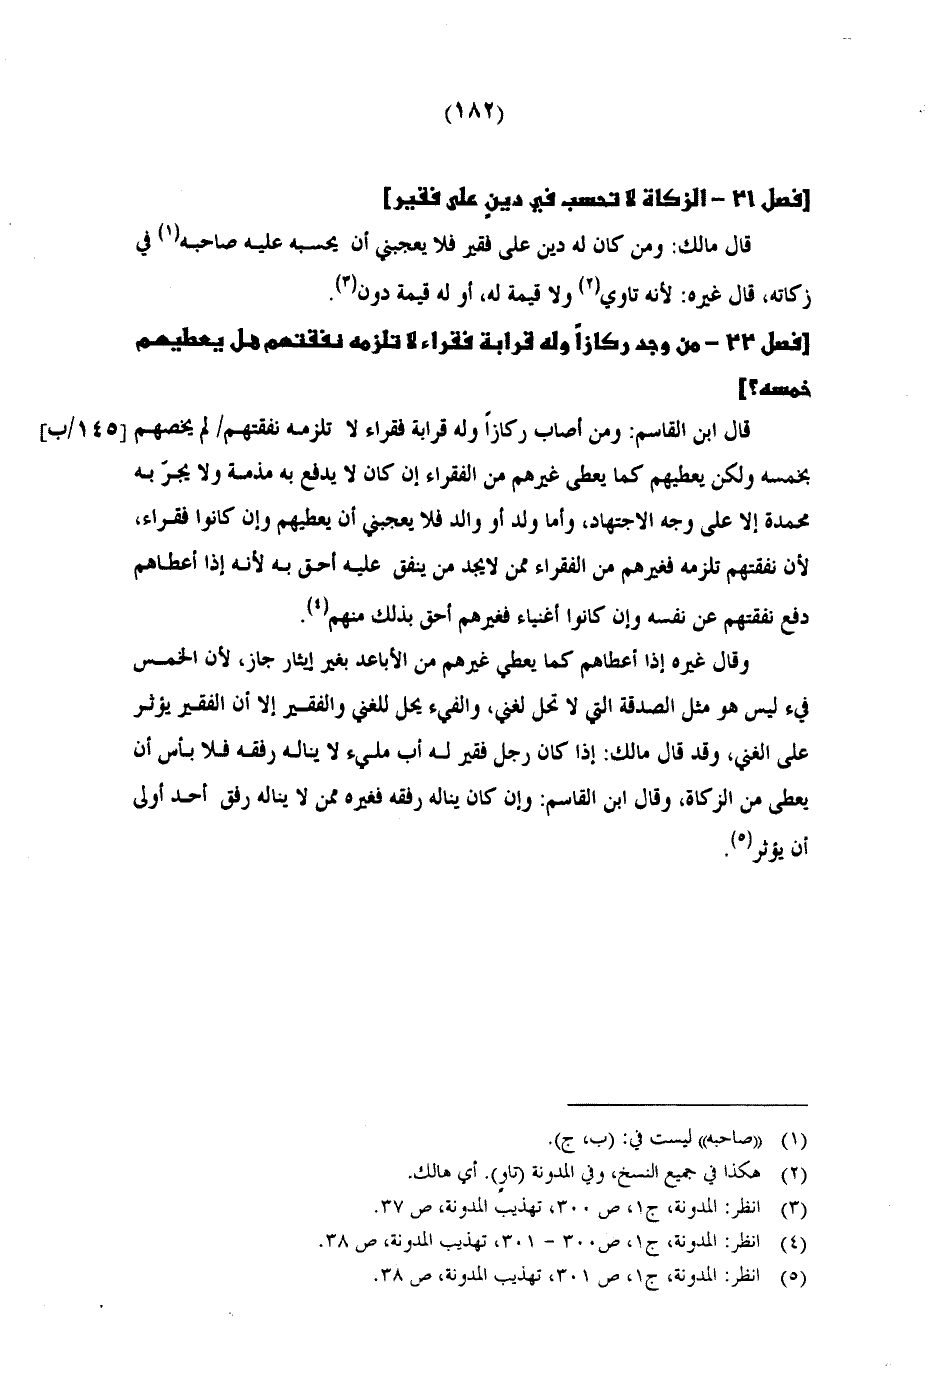 (١٨٢)
[فصل ٣١ - الزكاة لا تحسب في دينٍ على فقير]
قال مالك: ومن كان له دين على فقير فلا يعجبني أن يحسبه عليه صاحبه(١) في
زكاته، قال غيره: لأنه تاوي(٢) ولا قيمة له، أو له قيمة دون(٣).
[فصل ٣٣ - من وجد ركازاً وله قرابة فقراء لا تلزمه نفقتهم هل يعطيهم
خمسه؟]
قال ابن القاسم: ومن أصاب ركازاً وله قرابة فقراء لا تلزمه نفقتهم/ لم يخصهم [١٤٥/ب]
بخمسه ولكن يعطيهم كما يعطى غيرهم من الفقراء إن كان لا يدفع به مذمة ولا يجرّ به
محمدة إلا على وجه الاجتهاد، وأما ولد أو والد فلا يعجبني أن يعطيهم وإن كانوا فقراء،
لأن نفقتهم تلزمه فغيرهم من الفقراء ممن لايجد من ينفق عليه أحق به لأنه إذا أعطاهم
دفع نفقتهم عن نفسه وإن كانوا أغنياء فغيرهم أحق بذلك منهم(٤).
وقال غيره إذا أعطاهم كما يعطي غيرهم من الأباعد بغير إيثار جاز، لأن الخمس
فيء ليس هو مثل الصدقة التي لا تحل لغني، والفيء يحل للغني والفقير إلا أن الفقير يؤثر
على الغني، وقد قال مالك: إذا كان رجل فقير له أب مليء لا يناله رفقه فلا بأس أن
يعطى من الزكاة، وقال ابن القاسم: وإن كان يناله رفقه فغيره ممن لا يناله رفق أحد أولى
أن يؤثر(٥).
(١) «صاحبه» ليست في: (ب، ج).
(٢) هكذا في جميع النسخ، وفي المدونة (تاوٍ). أي هالك.
(٣) انظر: المدونة، ج١، ص ٣٠٠، تهذيب المدونة، ص ٣٧.
(٤) انظر: المدونة، ج١، ص٣٠٠ - ٣٠١، تهذيب المدونة، ص ٣٨.
(٥) انظر: المدونة، ج١، ص ٣٠١، تهذيب المدونة، ص ٣٨.